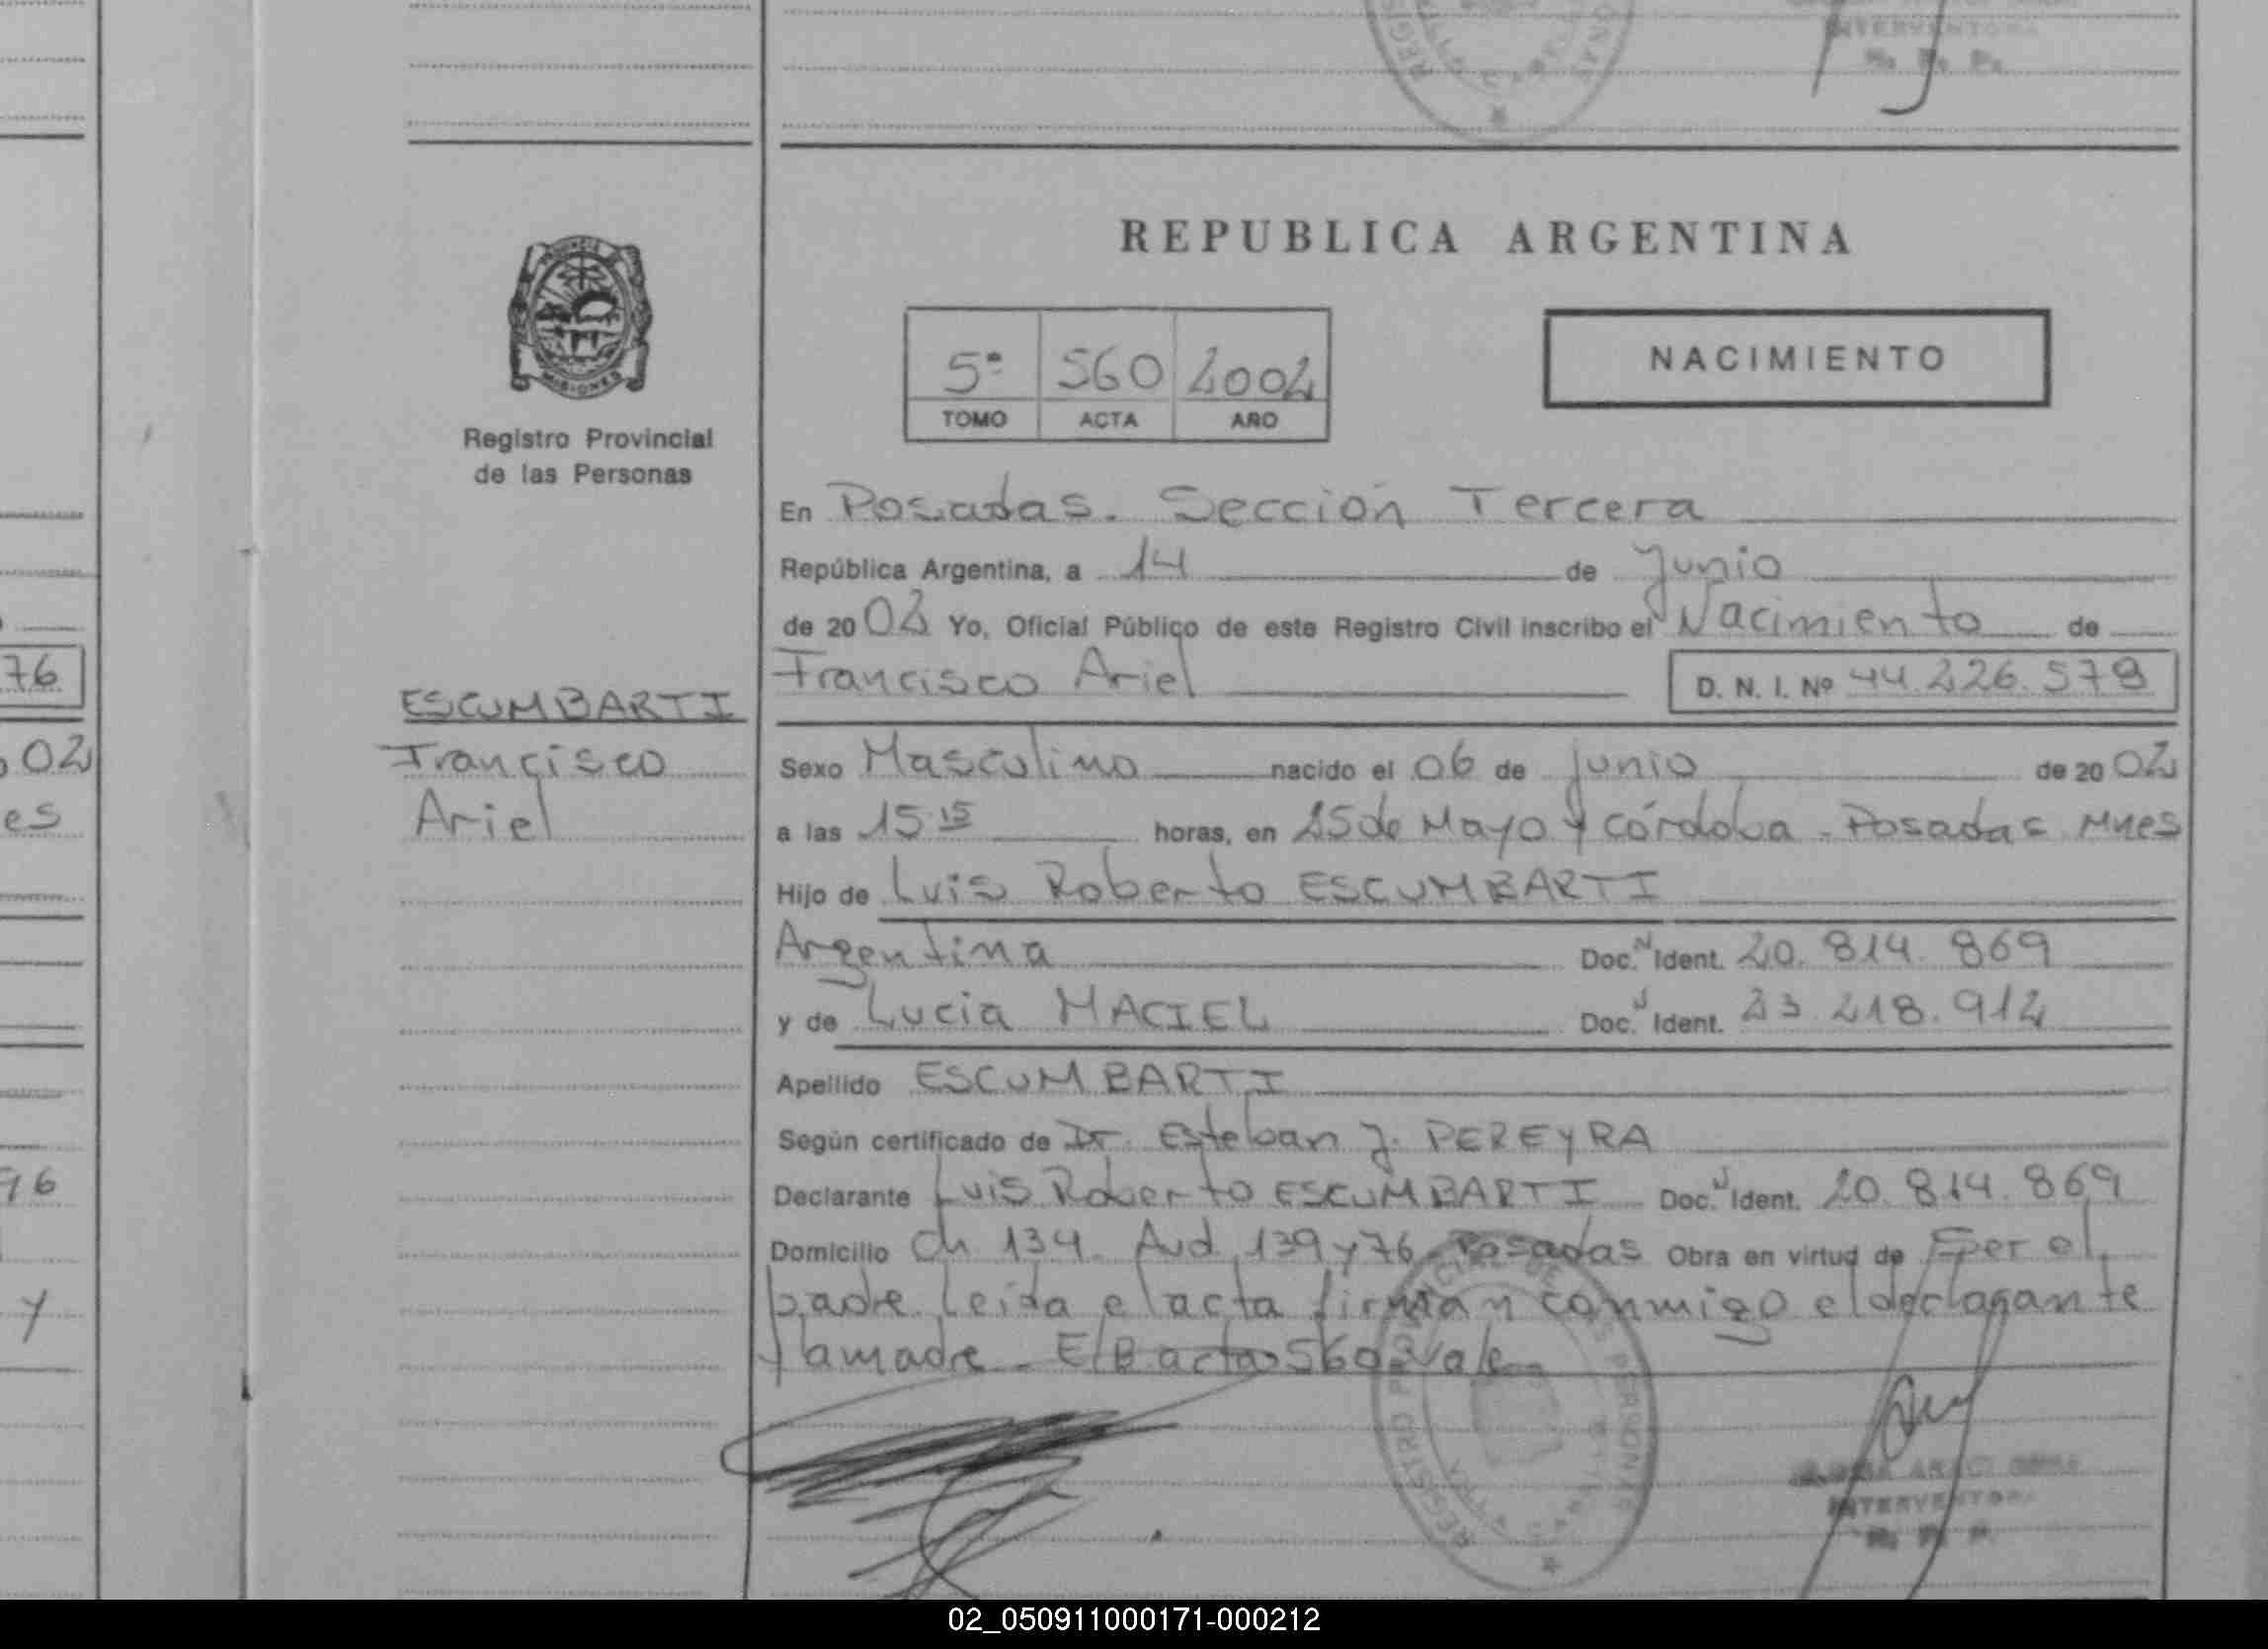 INTERVENTORA
R. P. P.
REPUBLICA ARGENTINA
MISIONES
5º 560 2002
TOMO ACTA AÑO
NACIMIENTO
Registro Provincial
de las Personas
En Posadas. Sección Tercera
República Argentina, a 14 de Junio
de 2002 Yo, Oficial Público de este Registro Civil inscribo el Nacimiento de
Francisco Ariel D. N. I. Nº 44.226.578
76
ESCUMBARTI
Francisco
Ariel
02
es
Sexo Masculino nacido el 06 de junio de 2002
a las 15 15 horas, en 25 de Mayo y Córdoba - Posadas Mnes
Hijo de Luis Roberto ESCUMBARTI
Argentina Doc. N Ident. 20. 814. 869
y de Lucia MACIEL Doc. N Ident. 23. 218. 912
Apellido ESCUMBARTI
Según certificado de Dr. Esteban J. PEREYRA
Declarante Luis Roberto ESCUMBARTI Doc. N Ident. 20. 814. 869
96
Domicilio Ch 134 Avd 139 y 76 Posadas Obra en virtud de Ser el
padre leida el acta firman conmigo el declarante
y
y la madre - E/B acta 560 Vale
REGISTRO PROVINCIAL DE LAS PERSONAS
INTERVENTORA
R. P. P.
02_050911000171-000212